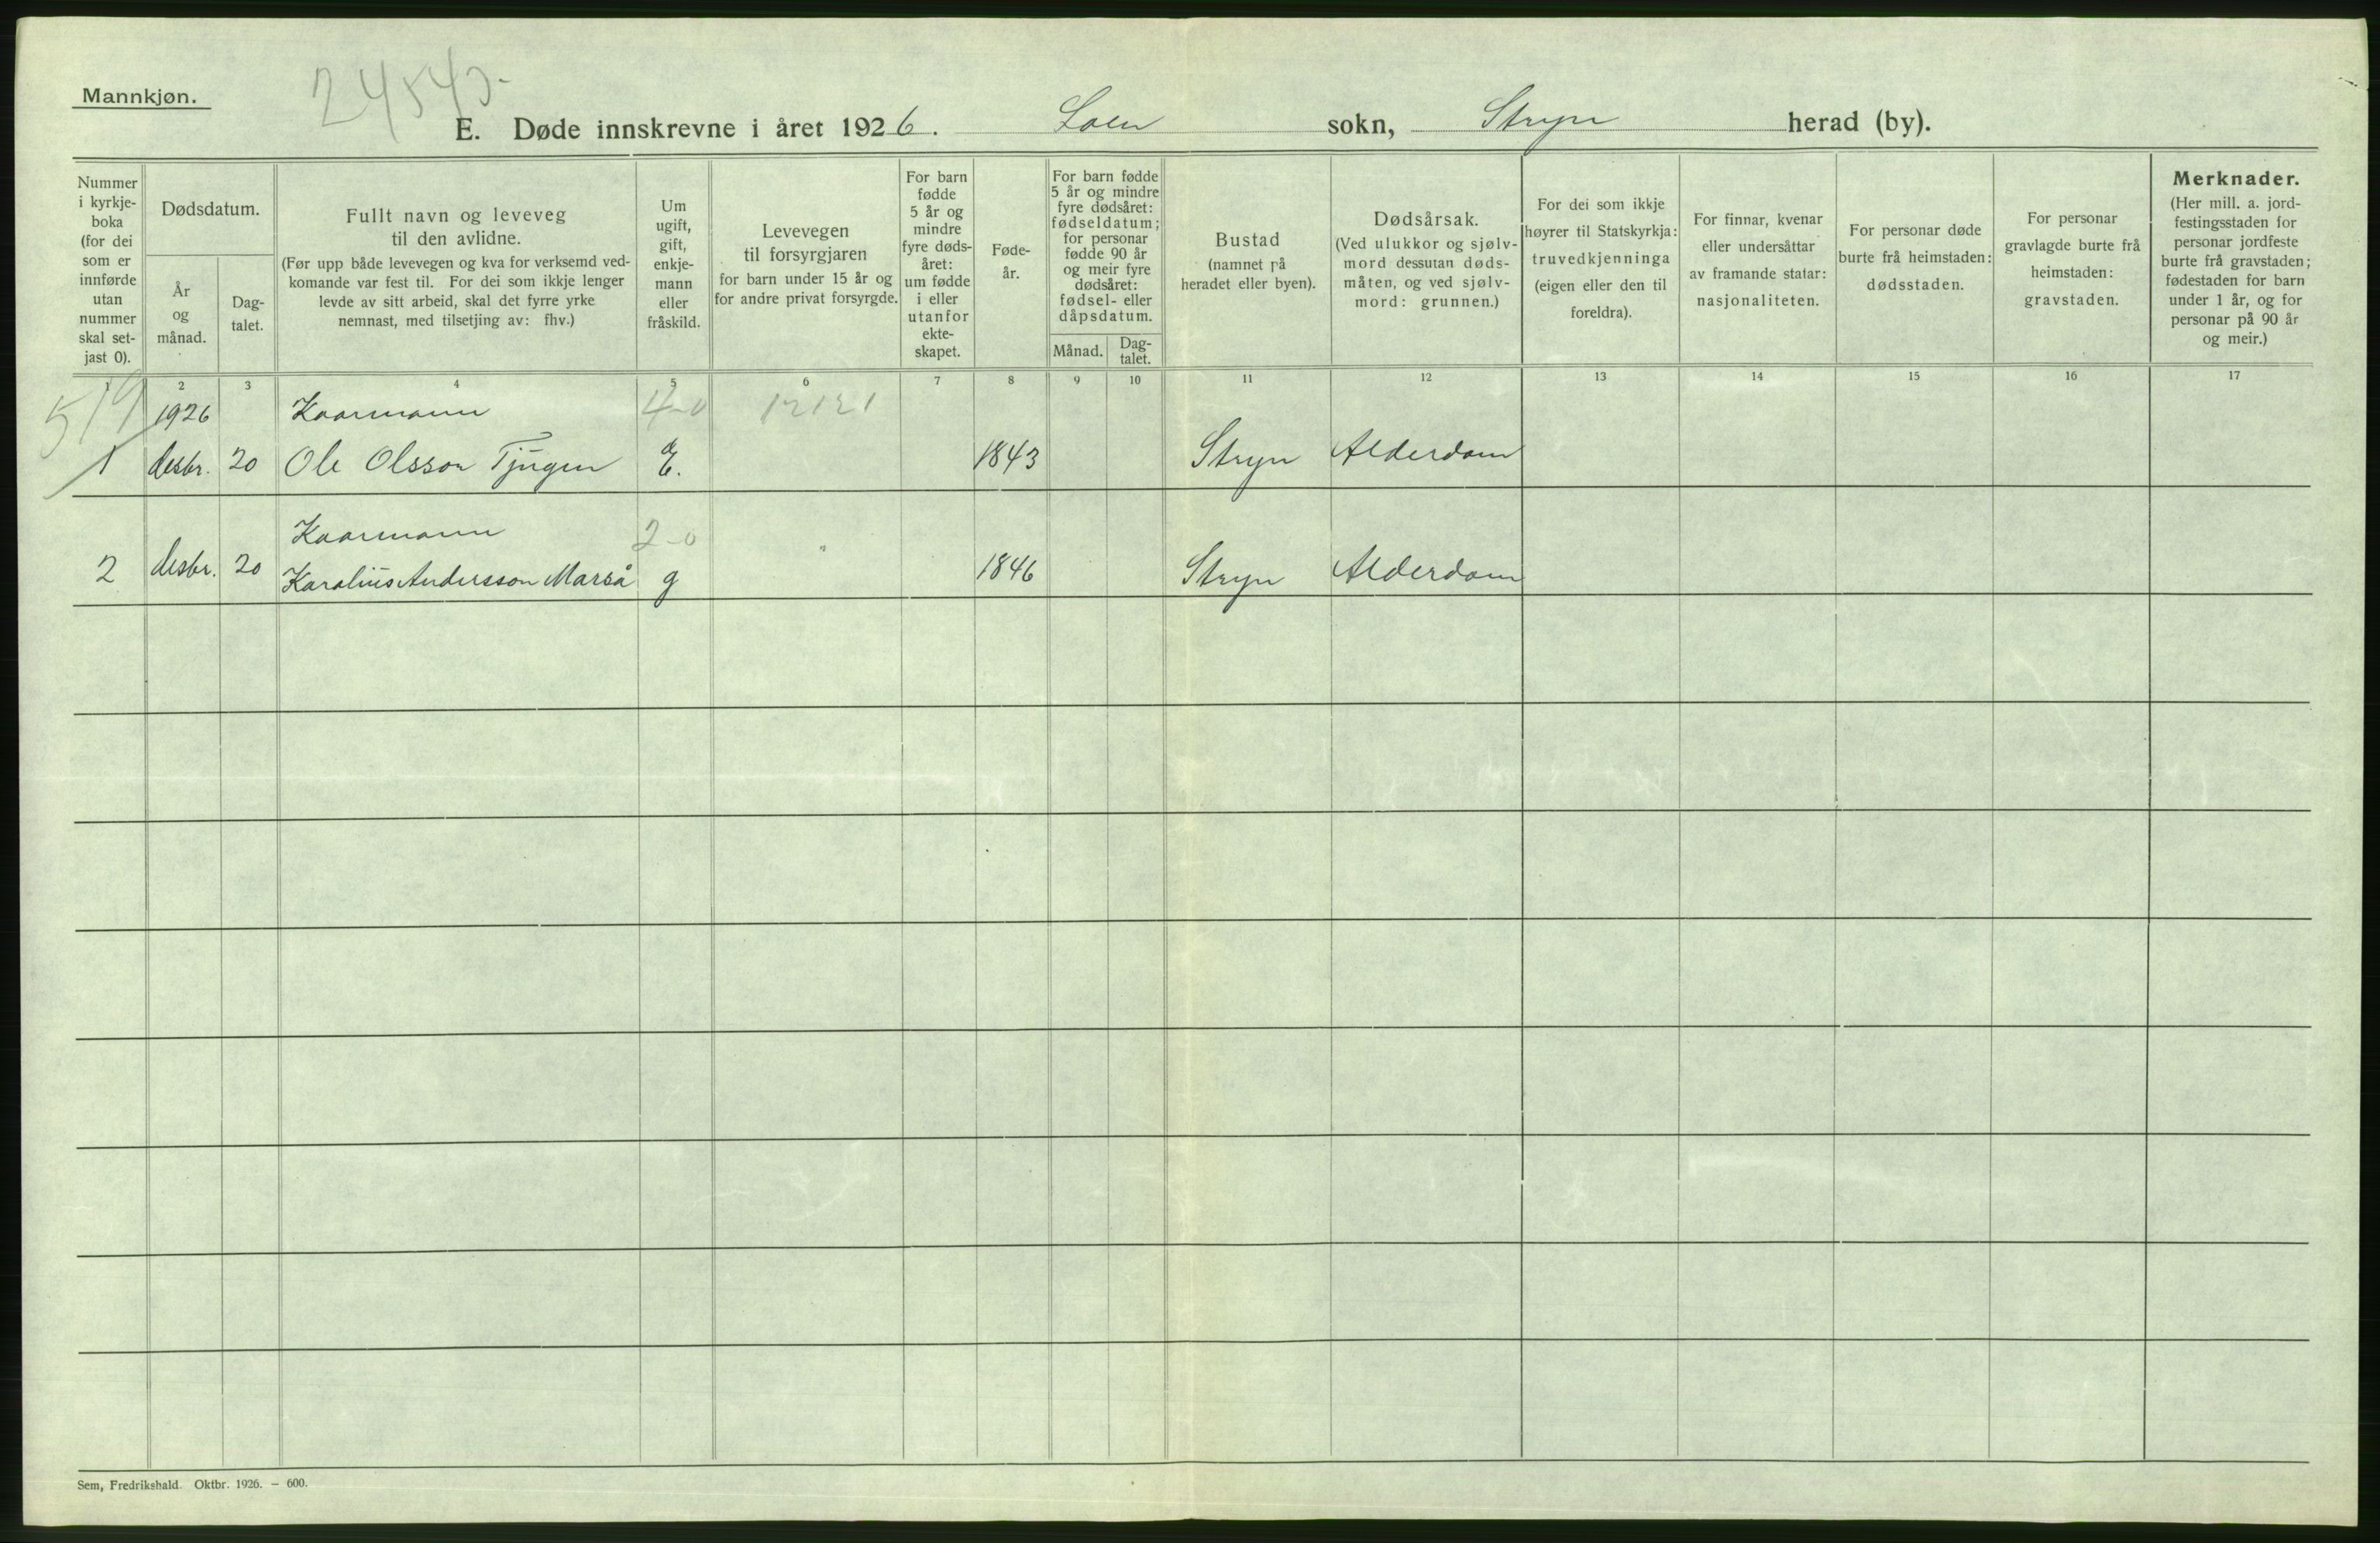 Mannkjøn.
2454
E. Døde innskrevne i året 1926. Loen sokn, Stryn herad (by).
Nummer i kyrkje- boka (for dei som er innførde utan nummer skal set- jast 0).
Dødsdatum.
År og månad.
Dag- talet.
Fullt navn og leveveg til den avlidne.
(Før upp både levevegen og kva for verksemd ved- komande var fest til. For dei som ikkje lenger levde av sitt arbeid, skal det fyrre yrke nemnast, med tilsetjing av: fhv.)
Um ugift, gift, enkje- mann eller fråskild.
Levevegen til forsyrgjaren for barn under 15 år og for andre privat forsyrgde.
For barn fødde 5 år og mindre fyre døds- året: um fødde i eller utanfor ekte- skapet.
Føde- år.
For barn fødde 5 år og mindre fyre dødsåret: fødseldatum; for personar fødde 90 år og meir fyre dødsåret: fødsel- eller dåpsdatum.
Månad.
Dag- talet.
Bustad (namnet på heradet eller byen).
Dødsårsak. (Ved ulukkor og sjølv- mord dessutan døds- måten, og ved sjølv- mord: grunnen.)
For dei som ikkje høyrer til Statskyrkja: truvedkjenninga (eigen eller den til foreldra).
For finnar, kvenar eller undersåttar av framande statar: nasjonaliteten.
For personar døde burte frå heimstaden: dødsstaden.
For personar gravlagde burte frå heimstaden: gravstaden.
Merknader. (Her mill. a. jord- festingsstaden for personar jordfeste burte frå gravstaden; fødestaden for barn under 1 år, og for personar på 90 år og meir.)
1 2 3 4 5 6 7 8 9 10 11 12 13 14 15 16 17
519 1926 Kaarmann 4-0 12121
1 desbr. 20 Ole Olsson Tjugen E. 1843 Stryn Alderdom
Kaarmann 2-0 "
2 desbr. 20 Karolius Andersson Marså g 1846 Stryn Alderdom
Sem, Fredrikshald. Oktbr. 1926. — 600.